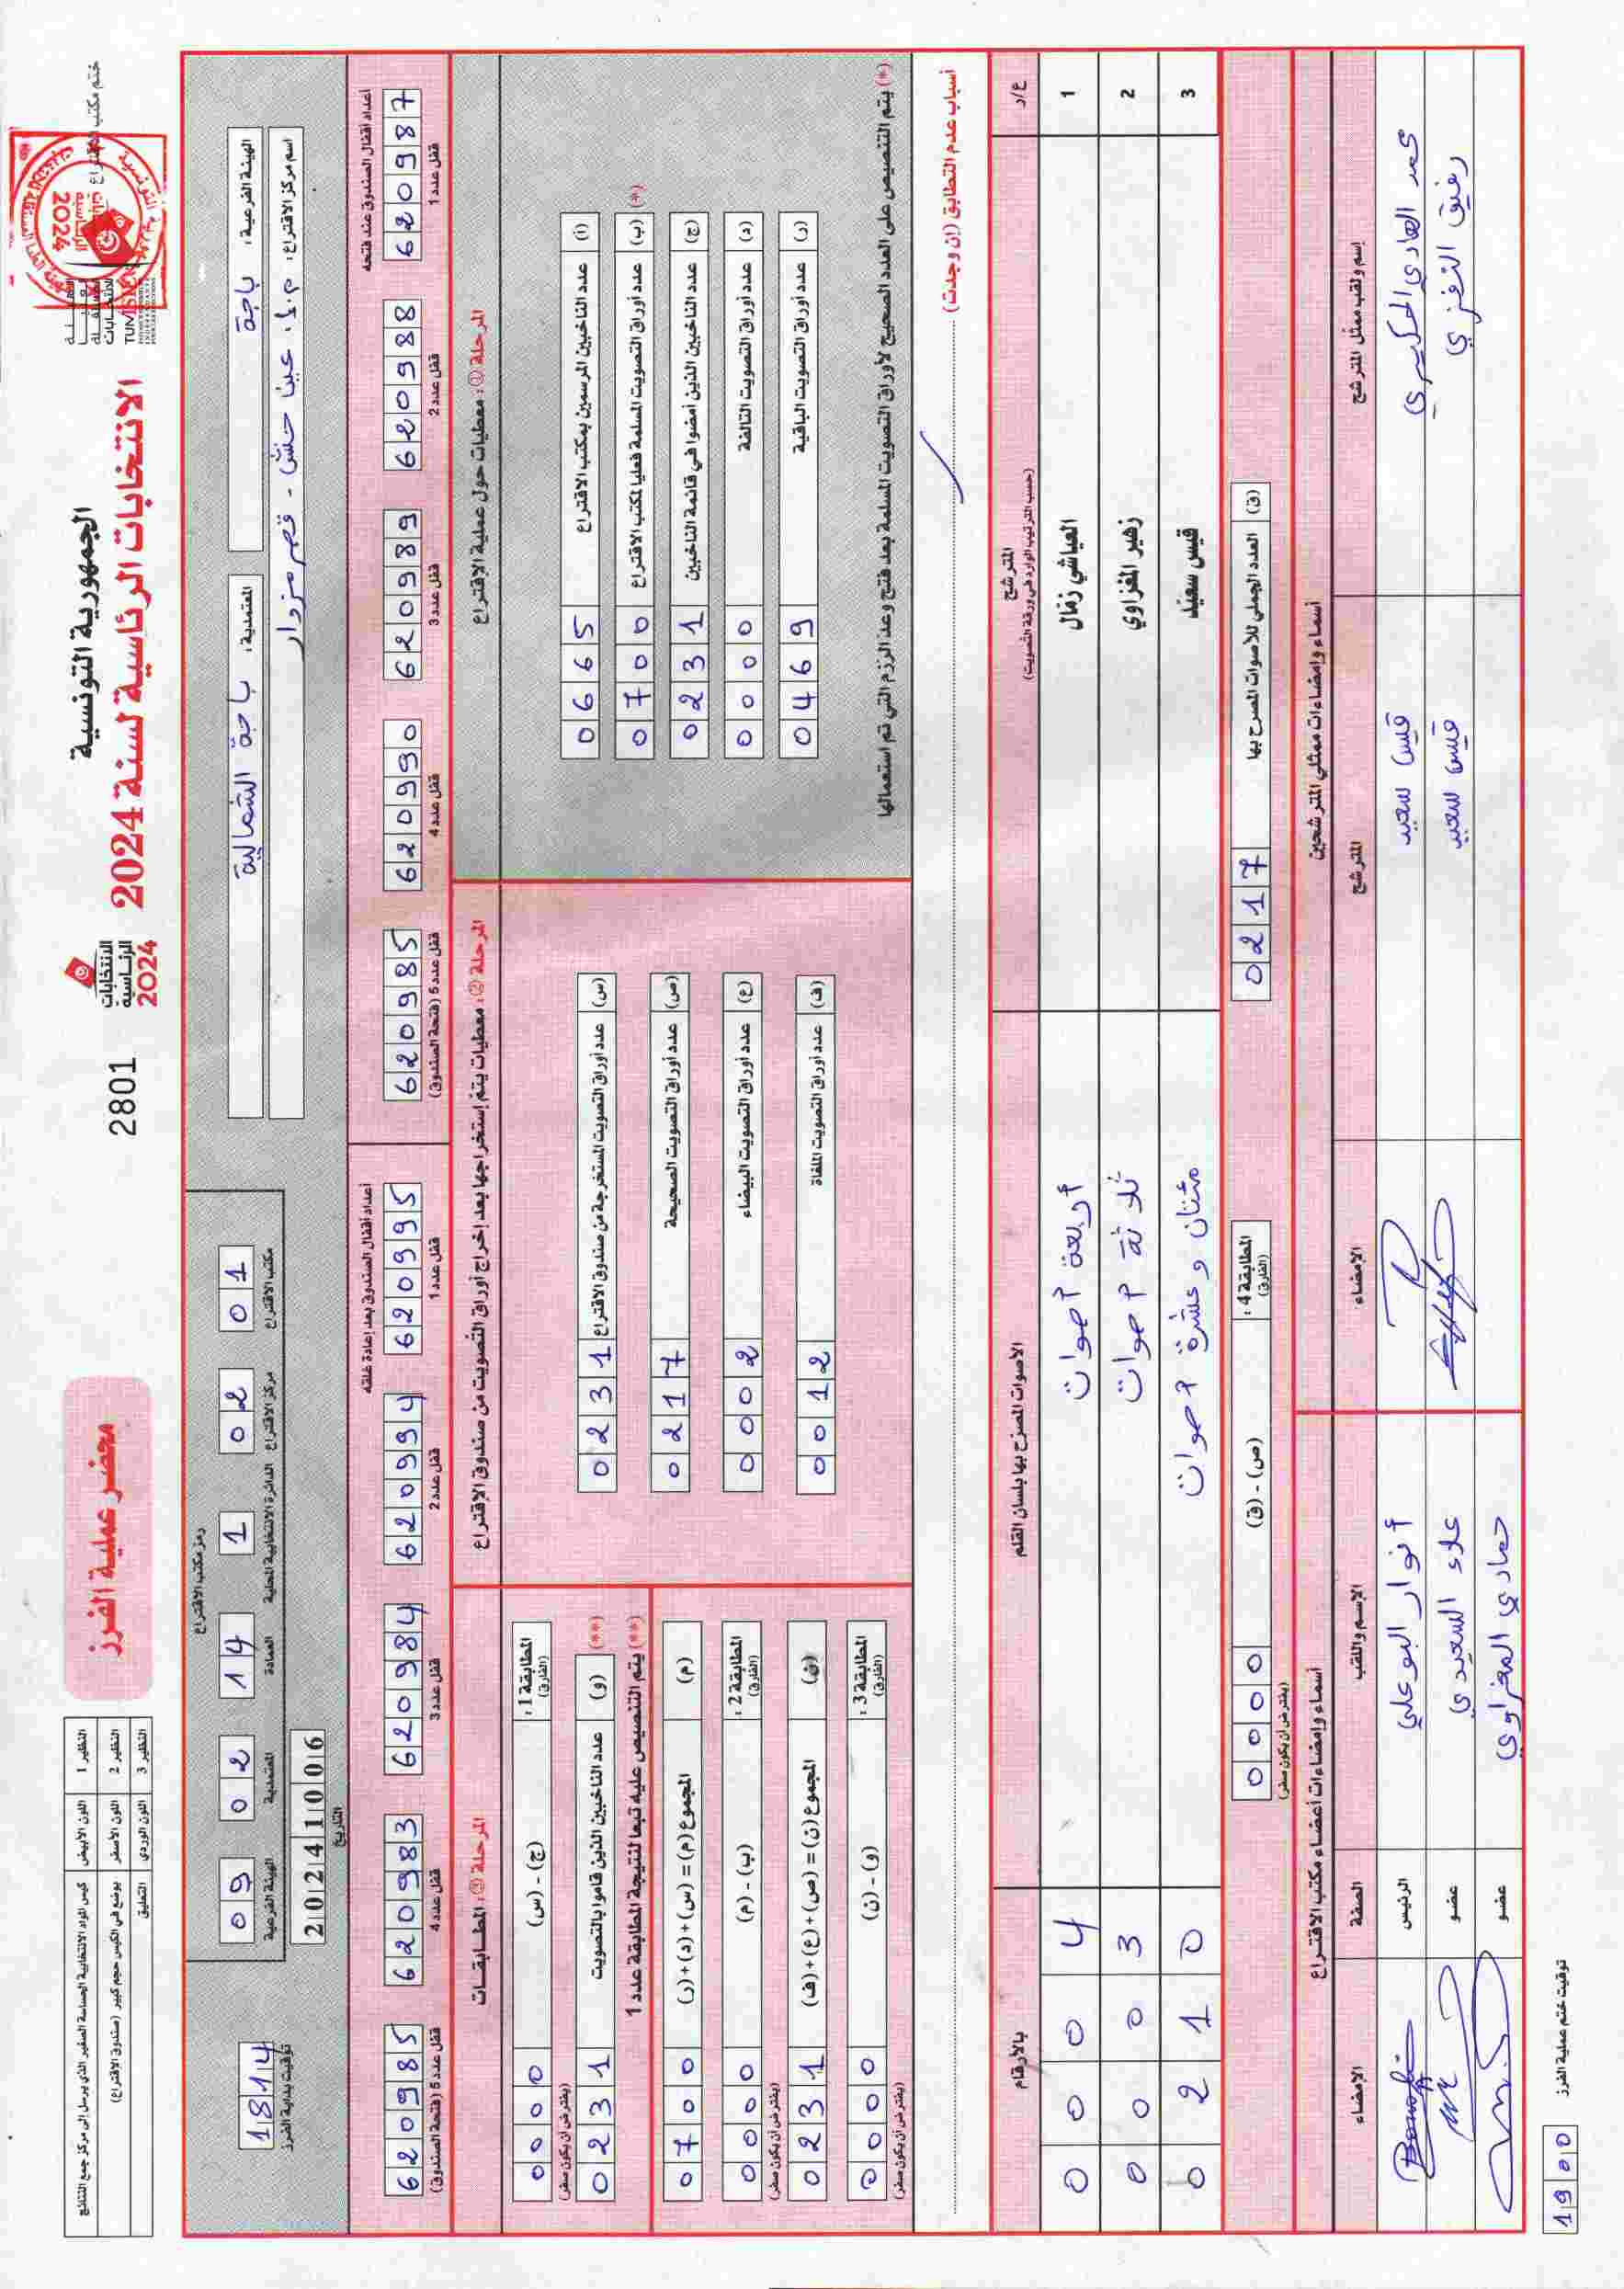 الجمهورية التونسية
الانتخابات الرئاسية لسنة 2024
الانتخابات
الرئاسية
2024
2801
محضر عملية الفرز
ختم مكتب الاقتراع
النظير 1 اللون الأبيض كيس المواد الانتخابية الحساسة الصغير الذي يرسل إلى مركز جمع النتائج
النظير 2 اللون الأصفر يوضع في الكيس حجم كبير (صندوق الاقتراع)
النظير 3 اللون الوردي التعليق
الهيئة الفرعية: باجة
المعتمدية: باجة الشمالية
اسم مركز الاقتراع: م.إ. عين حنش - قصر مزوار
رمز مكتب الاقتراع
09 02 14 1 02 01
الهيئة الفرعية المعتمدية العمادة الدائرة الانتخابية المحلية مركز الاقتراع مكتب الاقتراع
20241006
التاريخ
1814
توقيت بداية الفرز
أعداد أقفال الصندوق عند فتحه
620987 قفل عدد 1
620988 قفل عدد 2
620989 قفل عدد 3
620990 قفل عدد 4
620985 قفل عدد 5 (فتحة الصندوق)
أعداد أقفال الصندوق بعد إعادة غلقه
620995 قفل عدد 1
620994 قفل عدد 2
620984 قفل عدد 3
620983 قفل عدد 4
620985 قفل عدد 5 (فتحة الصندوق)
المرحلة ①: معطيات حول عملية الاقتراع
(أ) عدد الناخبين المرسمين بمكتب الاقتراع 0665
(ب) عدد أوراق التصويت المسلمة فعليا لمكتب الاقتراع 0700 (*)
(ج) عدد الناخبين الذين أمضوا في قائمة الناخبين 0231
(د) عدد أوراق التصويت التالفة 0000
(ر) عدد أوراق التصويت الباقية 0469
(*) يتم التنصيص على العدد الصحيح لأوراق التصويت المسلمة بعد فتح وعد الرزم التي تم استعمالها
المرحلة ②: معطيات يتم إستخراجها بعد إخراج أوراق التصويت من صندوق الاقتراع
(س) عدد أوراق التصويت المستخرجة من صندوق الاقتراع 0231
(ص) عدد أوراق التصويت الصحيحة 0217
(ع) عدد أوراق التصويت البيضاء 0002
(ف) عدد أوراق التصويت الملغاة 0012
المرحلة ③: المطابقات
المطابقة 1: (الفارق) (ج) - (س) 0000
(يفترض أن يكون صفر)
(**) (و) عدد الناخبين الذين قاموا بالتصويت 0231
(**) يتم التنصيص عليه تبعا لنتيجة المطابقة عدد 1
(م) المجموع (م) = (س) + (د) + (ر) 0700
المطابقة 2: (الفارق) (ب) - (م) 0000
(يفترض أن يكون صفر)
(ن) المجموع (ن) = (ص) + (ع) + (ف) 0231
المطابقة 3: (الفارق) (و) - (ن) 0000
(يفترض أن يكون صفر)
أسباب عدم التطابق (إن وجدت)
ع/ر المترشح الأصوات المصرح بها بلسان القلم بالأرقام
(حسب الترتيب الوارد في ورقة التصويت)
1 العياشي زمّال أربعة أصوات 0004
2 زهير المغزاوي ثلاثة أصوات 0003
3 قيس سعيّد مئتان وعشرة أصوات 0210
(ق) العدد الجملي للأصوات المصرح بها 0217
المطابقة 4: (الفارق) (ص) - (ق) 0000
(يفترض أن يكون صفر)
أسماء وإمضاءات ممثلي المترشحين
إسم ولقب ممثل المترشح المترشح الإمضاء
محمد الهادي الحكيري قيس سعيد
رفيق النفزي قيس سعيد
أسماء وإمضاءات أعضاء مكتب الاقتراع
الإسم واللقب الصفة الإمضاء
أنوار البوعلي الرئيس
علاء السعيدي عضو
حمادي المغراوي عضو
توقيت ختم عملية الفرز 1900